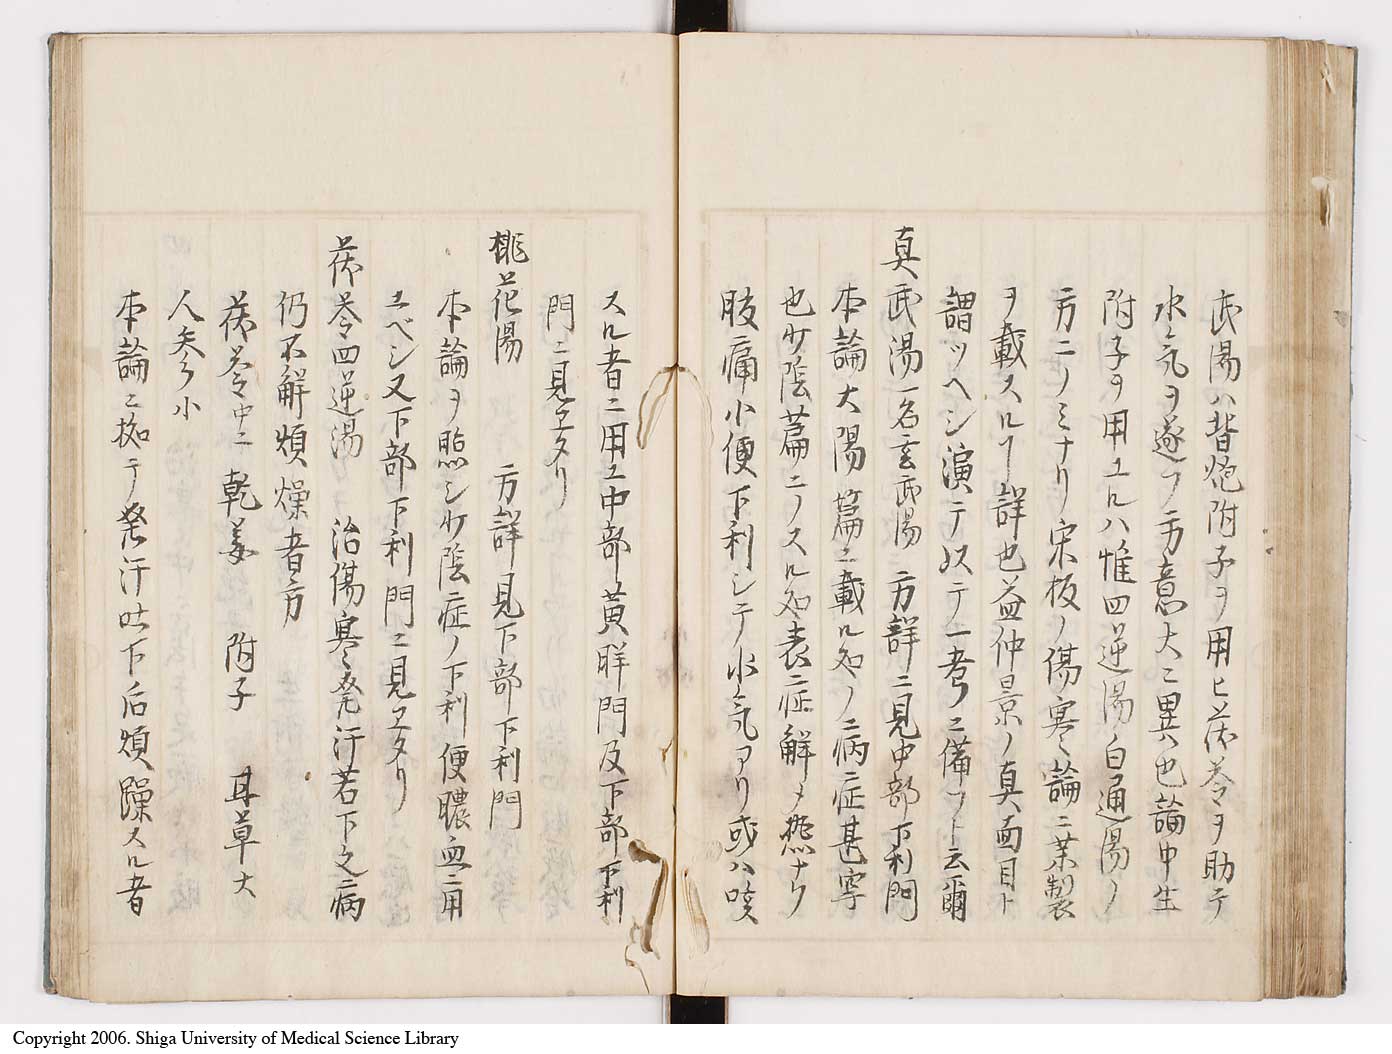 武湯ハ皆炮附子ヲ用ヒ茯苓ヲ助テ
水気ヲ逐フ方意大ニ異ル也論中生
附子ヲ用ユルハ惟四逆湯白通湯ノ
方ニノミナリ宋板ノ傷寒論ニ薬製
ヲ載スルヿ詳也益仲景ノ真面目ト
謂ツヘシ演テ以テ一考ニ備フト云爾
真武湯一名玄武湯 方詳ニ見中部下利門
本論大陽篇ニ載ル処ノニ病症甚寧
也少陰篇ニノスル処表症解メ熱ナク
腹痛小便下利シテ水気アリ或ハ咳
スル者ニ用ユ中部黄胖門及下部下利
門ニ見エタリ
桃花湯 方詳見下部下利門
本論ヲ照シ少陰症ノ下利便膿血ニ用
ユベシ又下部下利門ニ見エタリ
茯苓四逆湯 治傷寒発汗若下之病
仍不解煩燥者方
茯苓中ニ 乾姜 附子 耳草大
人参小
本論ニ拠テ発汗吐下后煩躁スル者
Copyright 2006. Shiga University of Medical Science Library